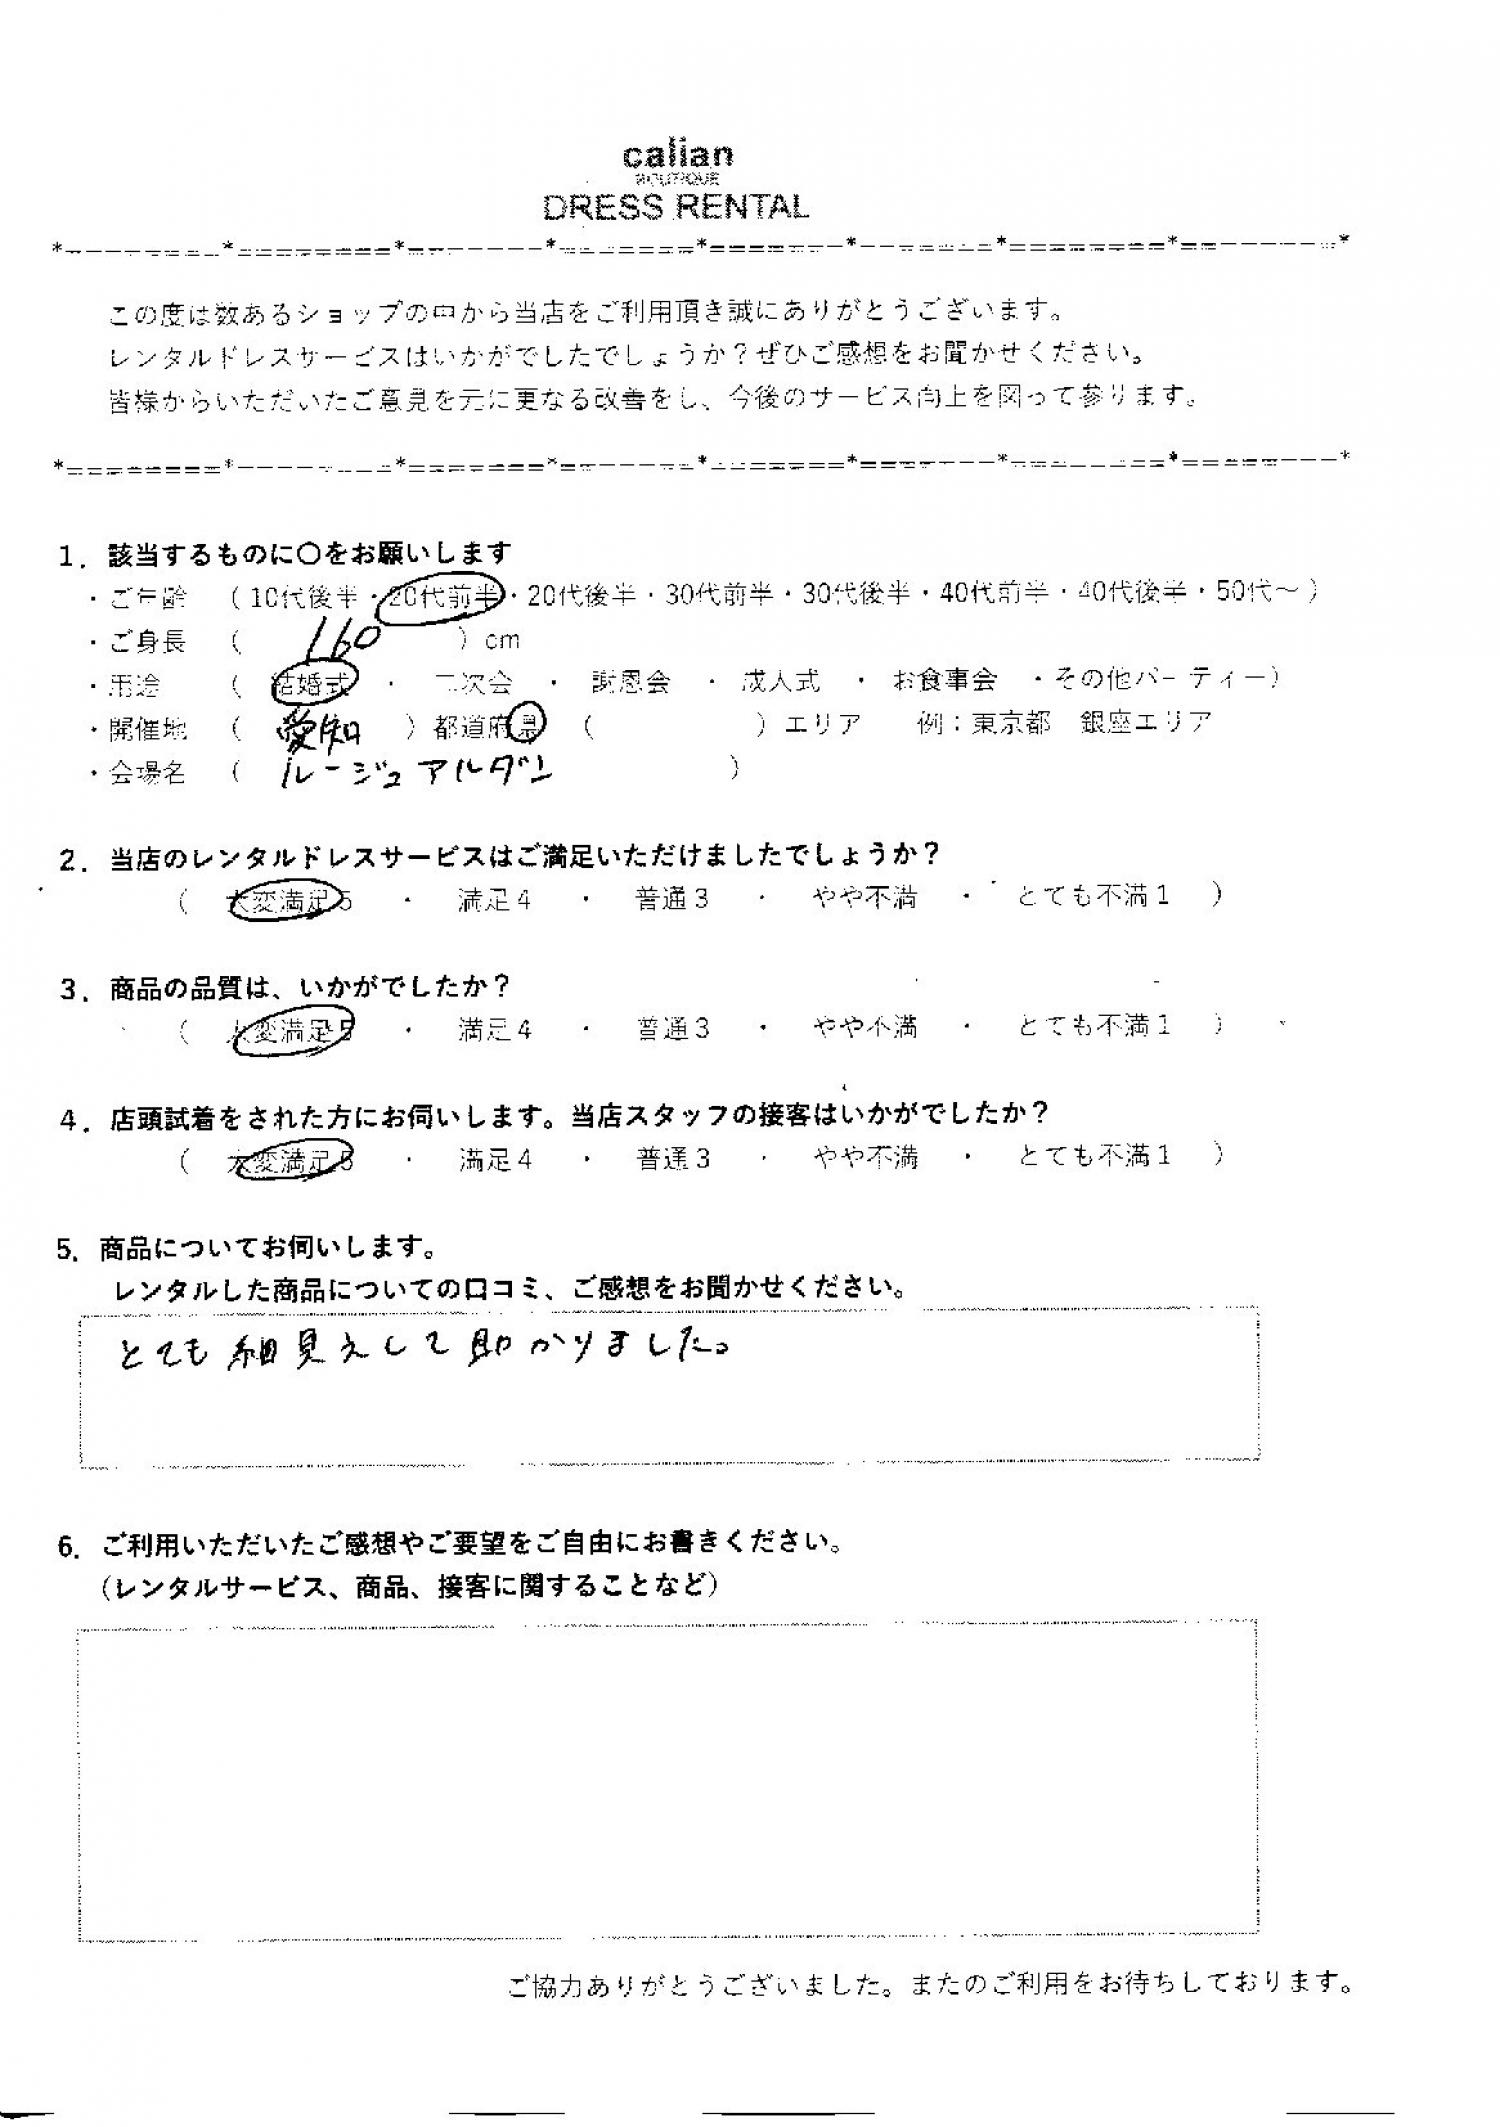 calian
BOUTIQUE
DRESS RENTAL
*--------*========*=-------*========*=======*--------*========*==-------*
この度は数あるショップの中から当店をご利用頂き誠にありがとうございます。
レンタルドレスサービスはいかがでしたでしょうか？ぜひご感想をお聞かせください。
皆様からいただいたご意見を元に更なる改善をし、今後のサービス向上を図って参ります。
*========*--------*========*=-------*========*=======*--------*========*
1．該当するものに〇をお願いします
・ご年齢 （ 10代後半・20代前半・20代後半・30代前半・30代後半・40代前半・40代後半・50代～ ）
・ご身長 （ 160 ）cm
・用途 （ 結婚式 ・ 二次会 ・ 謝恩会 ・ 成人式 ・ お食事会 ・その他パーティー）
・開催地 （ 愛知 ）都道府県 （ ）エリア 例：東京都 銀座エリア
・会場名 （ ルージュアルダン ）
2．当店のレンタルドレスサービスはご満足いただけましたでしょうか？
（ 大変満足5 ・ 満足4 ・ 普通3 ・ やや不満 ・ とても不満1 ）
3．商品の品質は、いかがでしたか？
（ 大変満足5 ・ 満足4 ・ 普通3 ・ やや不満 ・ とても不満1 ）
4．店頭試着をされた方にお伺いします。当店スタッフの接客はいかがでしたか？
（ 大変満足5 ・ 満足4 ・ 普通3 ・ やや不満 ・ とても不満1 ）
5．商品についてお伺いします。
レンタルした商品についての口コミ、ご感想をお聞かせください。
とても細見えして助かりました。
6．ご利用いただいたご感想やご要望をご自由にお書きください。
（レンタルサービス、商品、接客に関することなど）
ご協力ありがとうございました。またのご利用をお待ちしております。